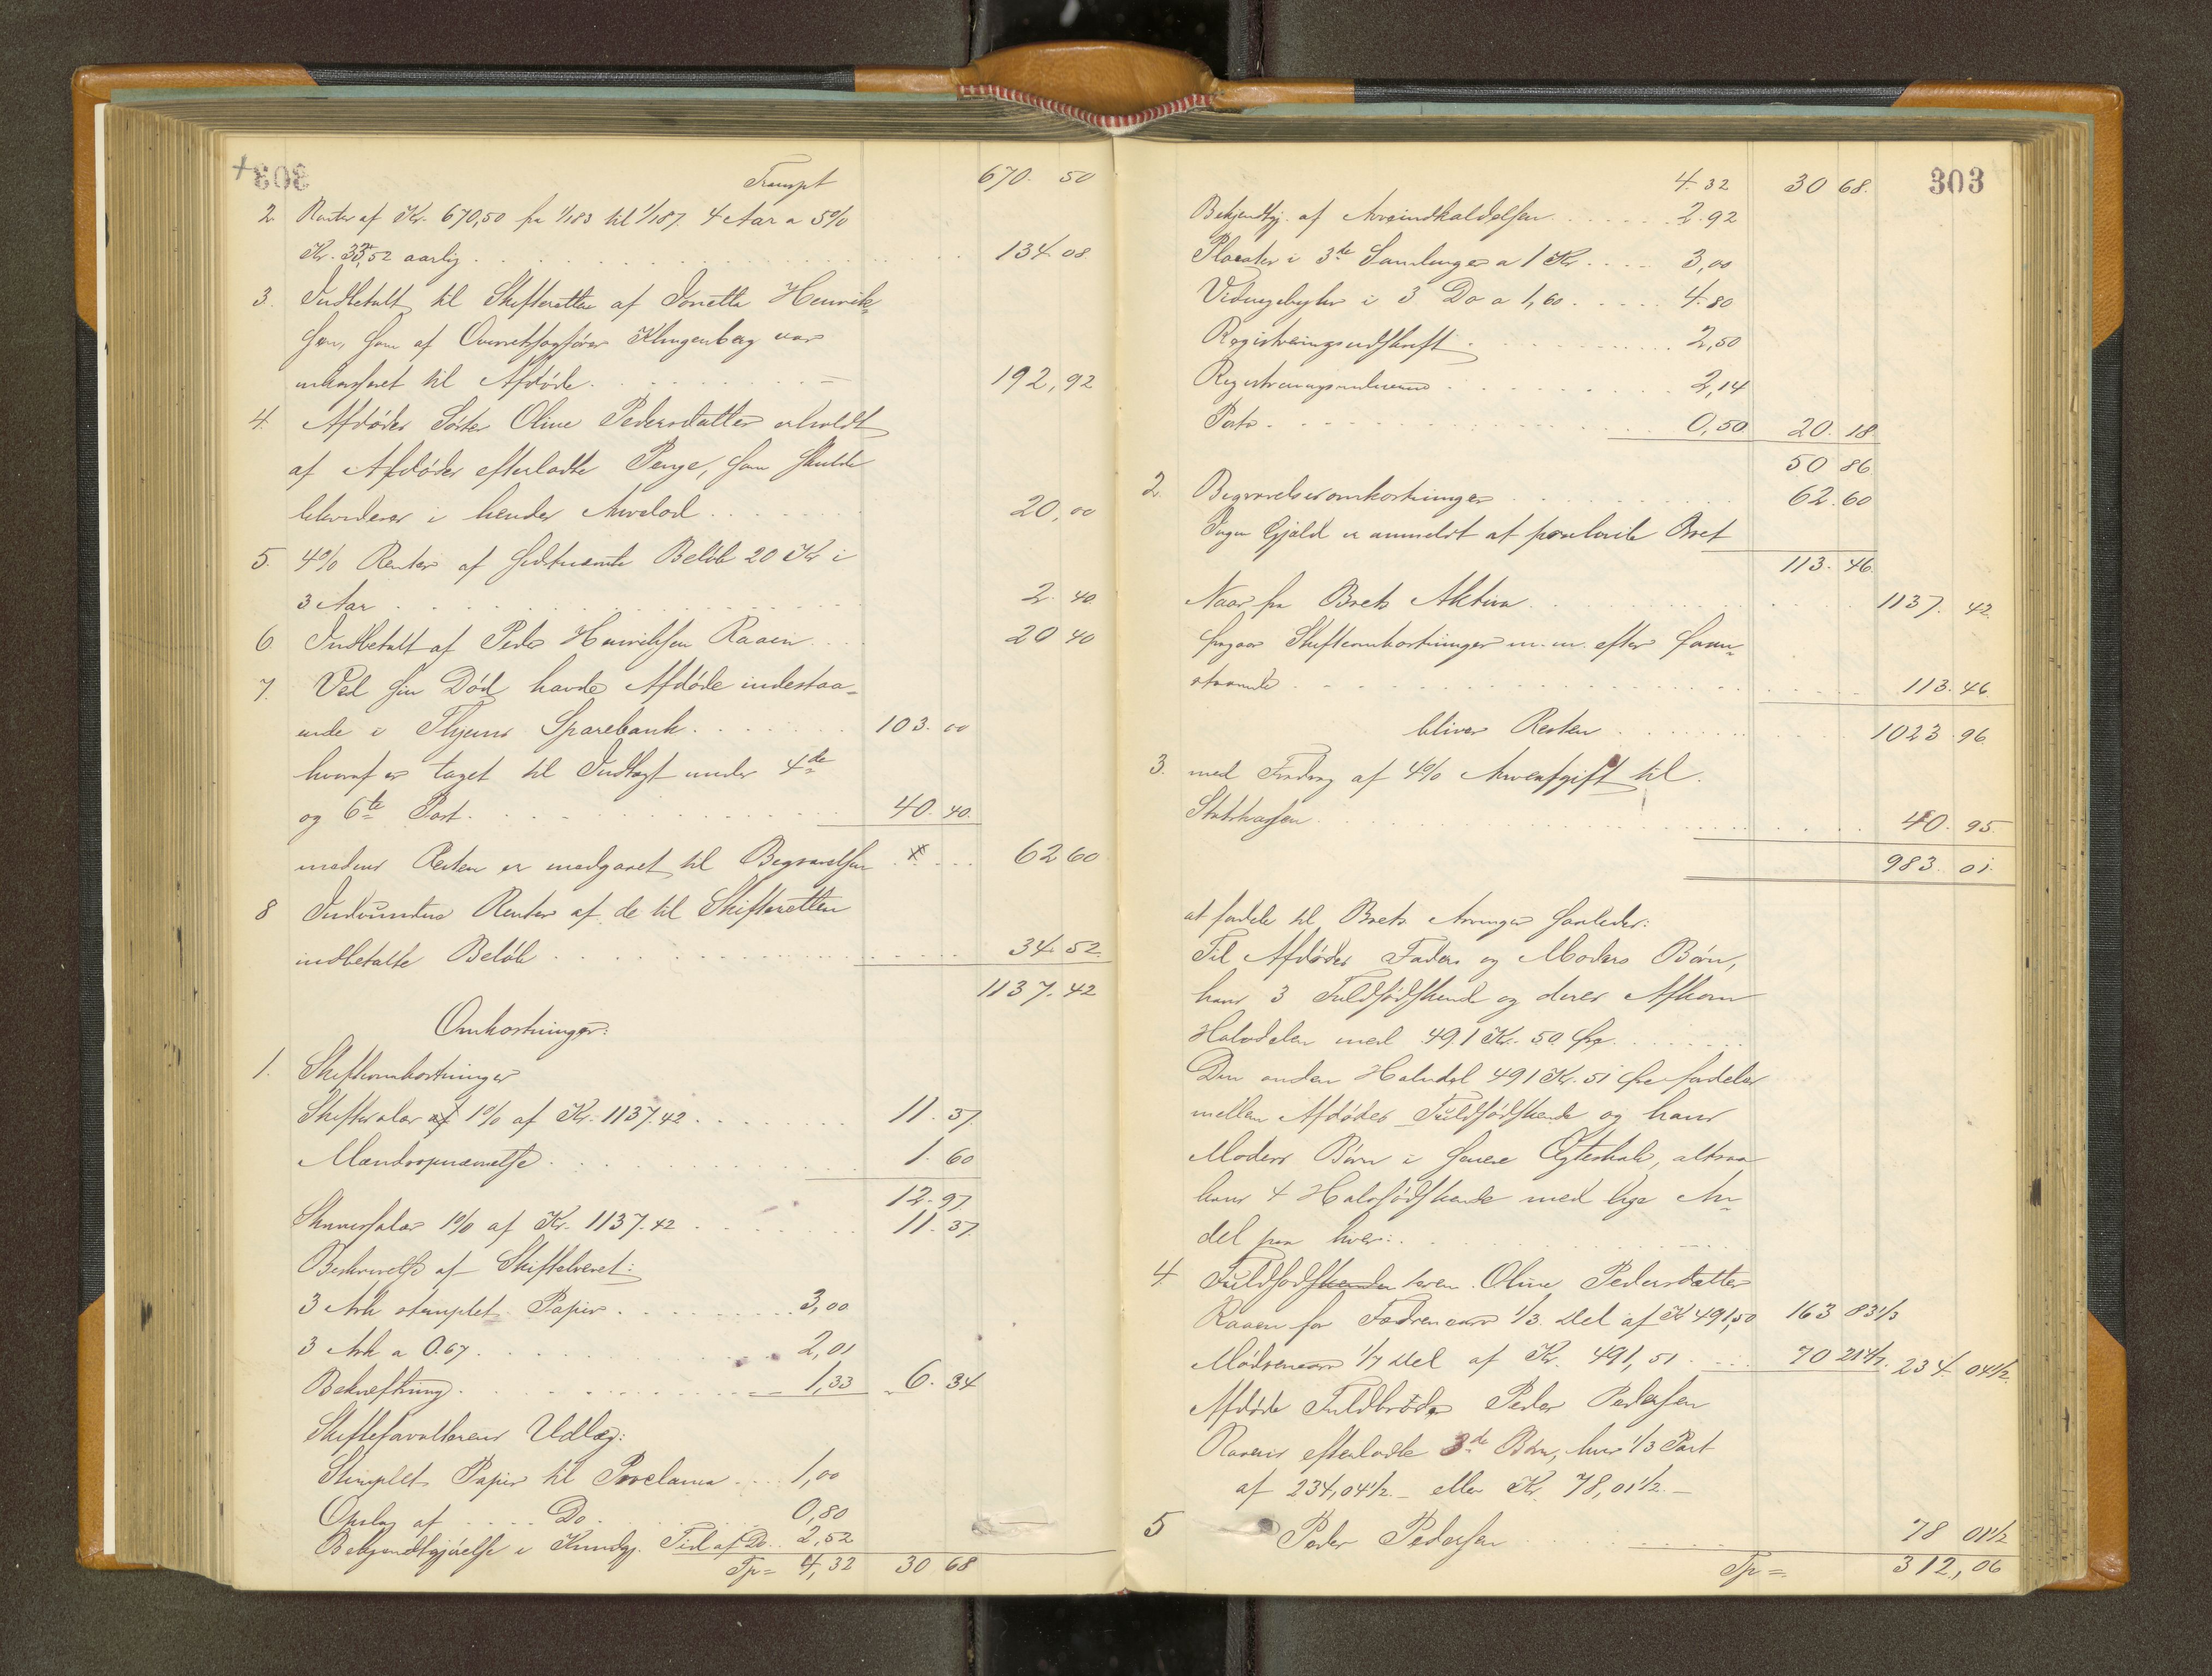 Transpt 670. 50
2. Renter af Kr. 670,50 fra 1/1 83 til 1/1 87. 4 Aar a 5%
Kr. 33,52 aarlig 134. 08
3. Indbetalt til Skifteretten af Jonette Henrik-
sen, som af Overretssagfører Klingenberg var
inkasseret til Afdøde 192,92
4. Afdødes Søster Oline Pedersdatter erholdt
af Afdødes efterladte Penge, som skulde
likvideres i hendes Arvelod 20,00
5. 4% Renter af sidstnævnte Beløb 20 Kr i
3 Aar 2. 40
6. Indbetalt af Peder Henriksen Raaen 20 40
7. Ved sin Død havde Afdøde indestaa-
ende i Thjems Sparebank 103. 00
hvoraf er taget til Indtægt under 4de
og 6te Post 40. 40.
medens Resten er medgaaet til Begravelsen 62 60
8 Indvundne Renter af de til Skifteretten
indbetalte Beløb 34 52.
1137. 42
Omkostninger:
1. Skifteomkostninger
Skiftesalær af 1% af Kr. 1137.42 11. 37.
Mændsopnævnelse 1. 60
12. 97.
Skriversalær 1% af Kr. 1137.42 11. 37.
Beskrivelse af Skiftebrevet:
3 Ark stemplet Papir 3,00
3 Ark a 0.67 2,01
Bekræftning 1,33 6. 34
Skifteforvalterens Udlæg:
Stemplet Papir til Proclama 1,00
Opslag af Do 0,80
Bekjendtgjørelse i Kundgj. Tid af Do 2,52
Tp = 4,32 30 68
303
4. 32 30 68.
Bekjendtgj. af Arveindkaldelsen 2. 92
Placater i 3de Samlinger a 1 Kr 3,00
Vidnegebyhr i 3 Do a 1,60 4. 80
Registreringsudskrift 2,50
2,14
Porto 0,50 20. 18
50 86.
2. Begravelsesomkostninger 62. 60
Ingen Gjæld er anmeldt at paahvile Boet
113. 46.
Naar fra Boets Aktiva 1137. 42.
fragaar Skifteomkostninger m. m. efter foran-
staaende 113. 46.
bliver Resten 1023. 96.
3. med Fradrag af 4% Arveafgift til
Statskassen 40. 95.
983. 01.
at fordele til Boets Arvinger saaledes:
Til Afdødes Faders og Moders Børn,
hans 3 Fuldsødskende og deres Afkom
Halvdelen med 491 Kr. 50 Øre
Den anden Halvdel 491 Kr. 51 Øre fordeles
mellem Afdødes Fuldsødskende og hans
Moders Børn i senere Ægteskab, altsaa
hans 4 Halvsødskende med lige An-
del paa hver:
4. Fuldsødskende Oline Pedersdatter
Raaen for Fædrenearv 1/3 Del af Kr 491,50 163 83 1/3
Mødrenearv 1/7 Del af Kr. 491,51 70 21 4/7. 234. 04 1/2.
Afdøde Fuldbroder Peder Pedersen
Raaens efterladte 3de Børn, hver 1/3 Part
af 234,04 1/2 eller Kr. 78,01 1/2.
5 Peder Pedersen 78 01 1/2
Tp = 312,06